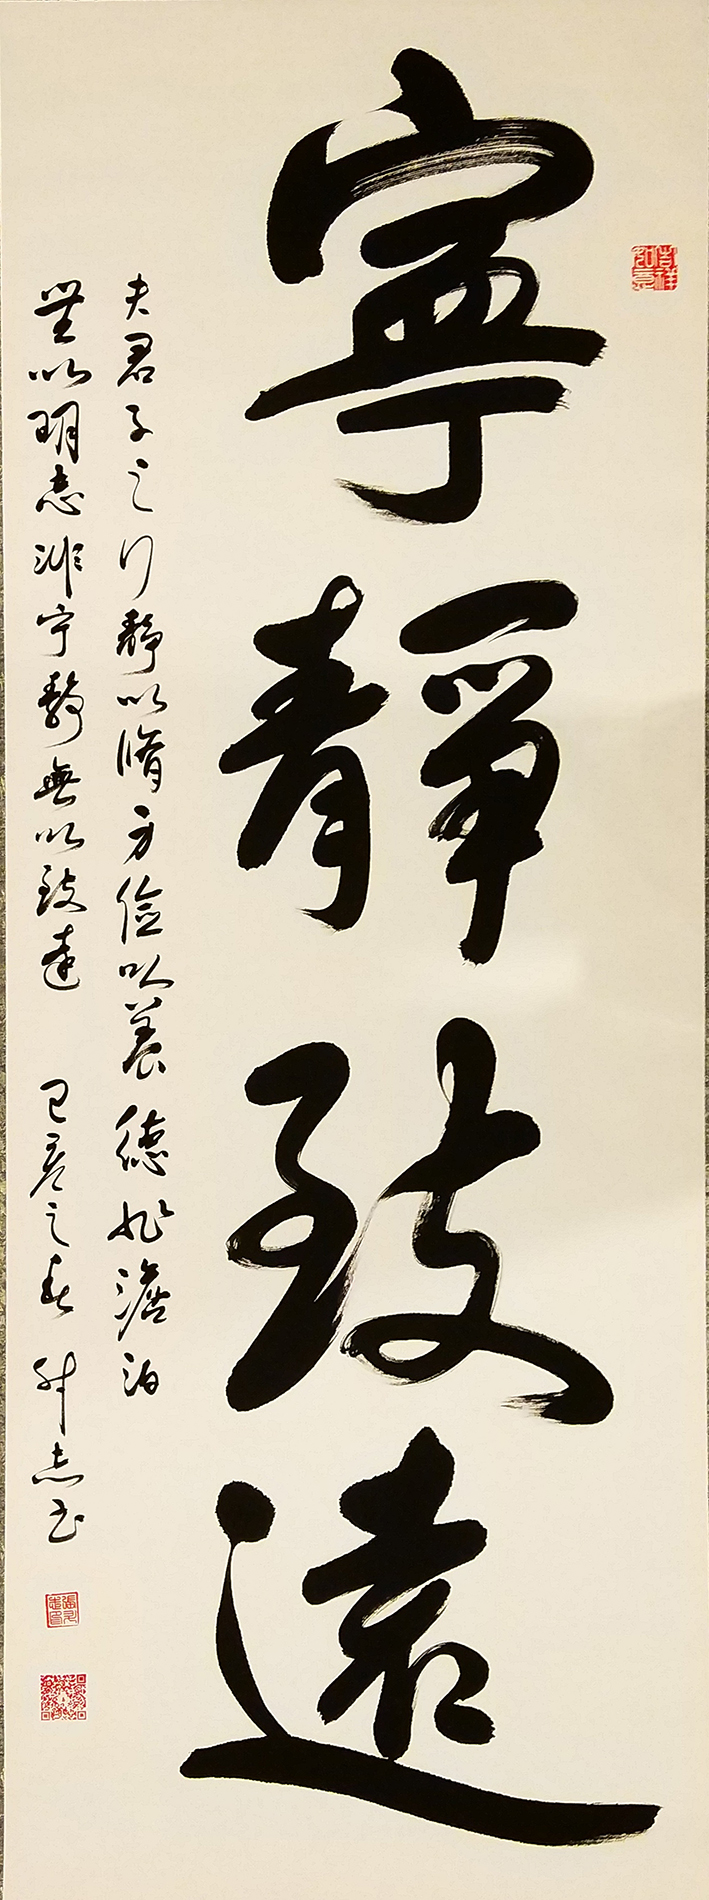 吉祥如意
寧靜致遠
夫君子之行靜以脩身儉以養德非澹泊
無以明志非寧靜無以致遠 己亥之春 志書